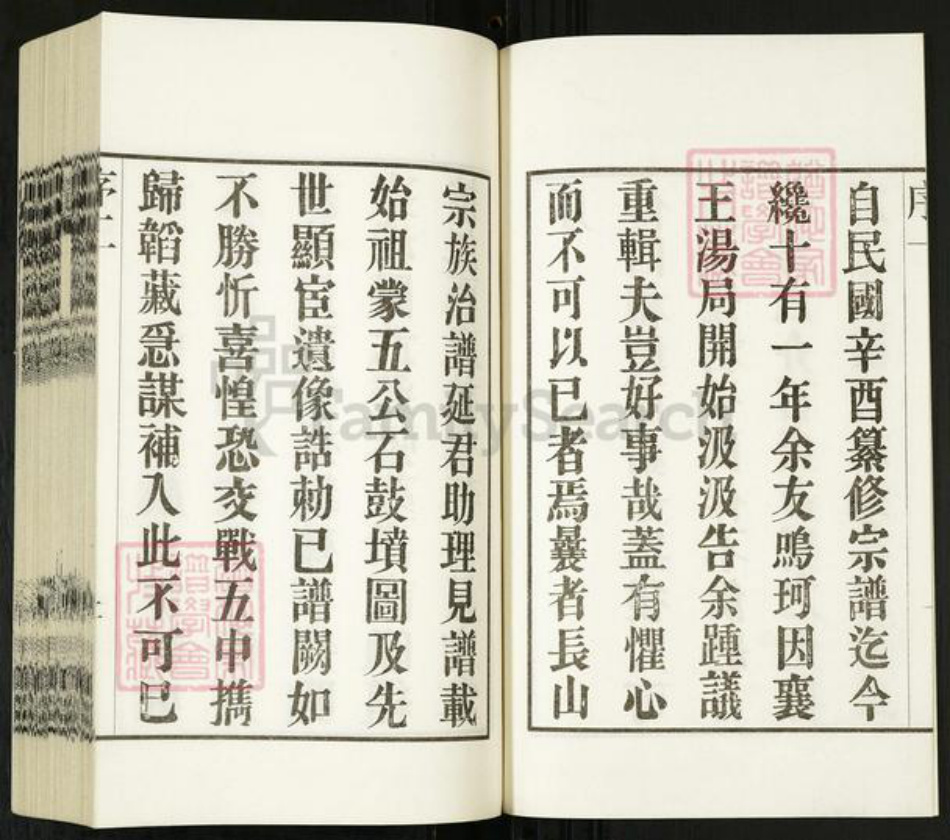 序一
自民國辛酉纂修宗譜迄今
纔十有一年余友鳴珂因襄
王湯局開始汲汲告余踵議
重輯夫豈好事哉蓋有懼心
而不可以已者焉曩者長山
宗族治譜延君助理見譜載
始祖蒙五公石鼓墳圖及先
世顯宦遺像誥勅已譜闕如
不勝忻喜惶恐交戰五中擕
歸韜藏亟謀補入此不可已
序二
FamilySearch